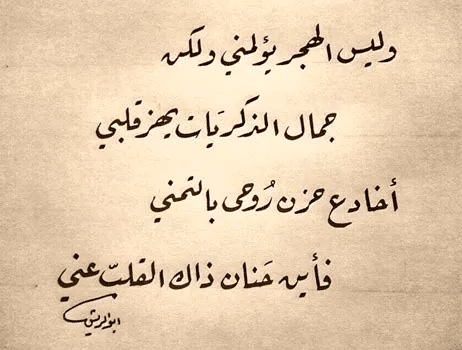 وليس الهجر يؤلمني ولكن
جمال الذكريَات يهز قلبي
أخادع حزن رُوحى بالتمني
فأين حَنان ذاك القلبّ عني
ابو الريش